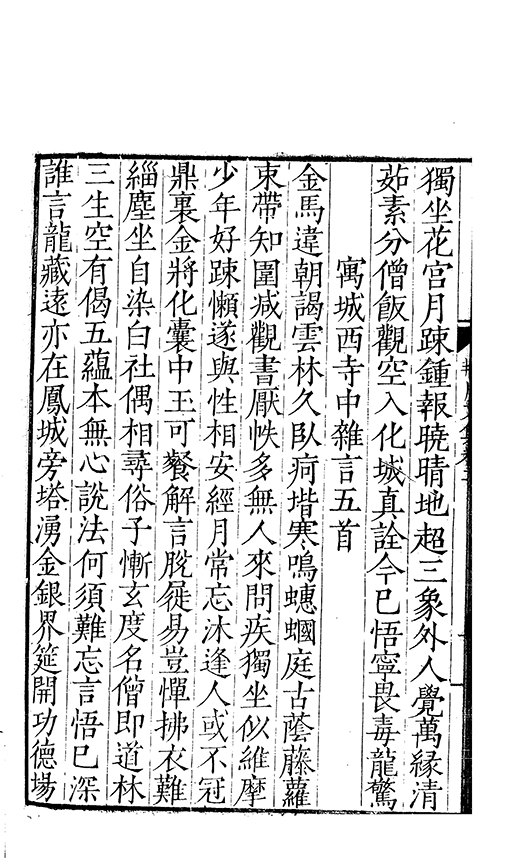 獨坐花宫月踈鍾報曉晴地超三象外人覺萬緣清
茹素分僧飯觀空入化城真詮今已悟寧畏毒龍驚
寓城西寺中雜言五首
金馬違朝謁雲林久臥痾堦寒鳴蟪蟈庭古蔭藤蘿
束帶知圍减觀書厭帙多無人來問疾獨坐似維摩
少年好踈懶遂與性相安經月常忘沐逢人或不冠
鼎裏金將化囊中玉可餐解言脫屣易豈憚拂衣難
緇塵坐自染白社偶相尋俗子慚玄度名僧即道林
三生空有偈五蘊本無心說法何須難忘言悟已深
誰言龍藏遠亦在鳳城旁塔湧金銀界筵開功德塲